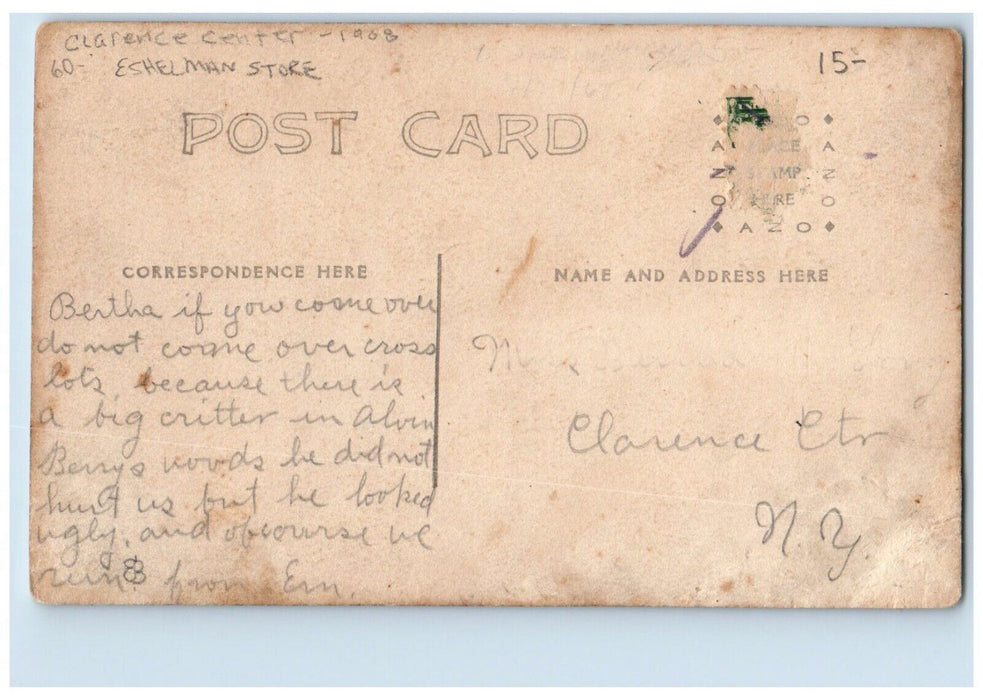 Clarence Center - 1908
60- ESHELMAN STORE
15-
POST CARD
AZO
PLACE
STAMP
HERE
AZO
AZO
AZO
CORRESPONDENCE HERE
NAME AND ADDRESS HERE
Bertha if you come over
do not come over cross
lots, because there is
a big critter in Alvin
Berrys woods he did not
hurt us but he looked
ugly, and ofcourse we
run. from Em.
Clarence Ctr
N. Y.